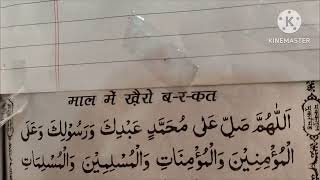 KINEMASTER
माल में ख़ैरो ब-र-कत
اَللّٰهُمَّ صَلِّ عَلٰى مُحَمَّدٍ عَبْدِكَ وَرَسُوْلِكَ وَعَلَى
الْمُؤْمِنِيْنَ وَالْمُؤْمِنَاتِ وَالْمُسْلِمِيْنَ وَالْمُسْلِمَاتِ